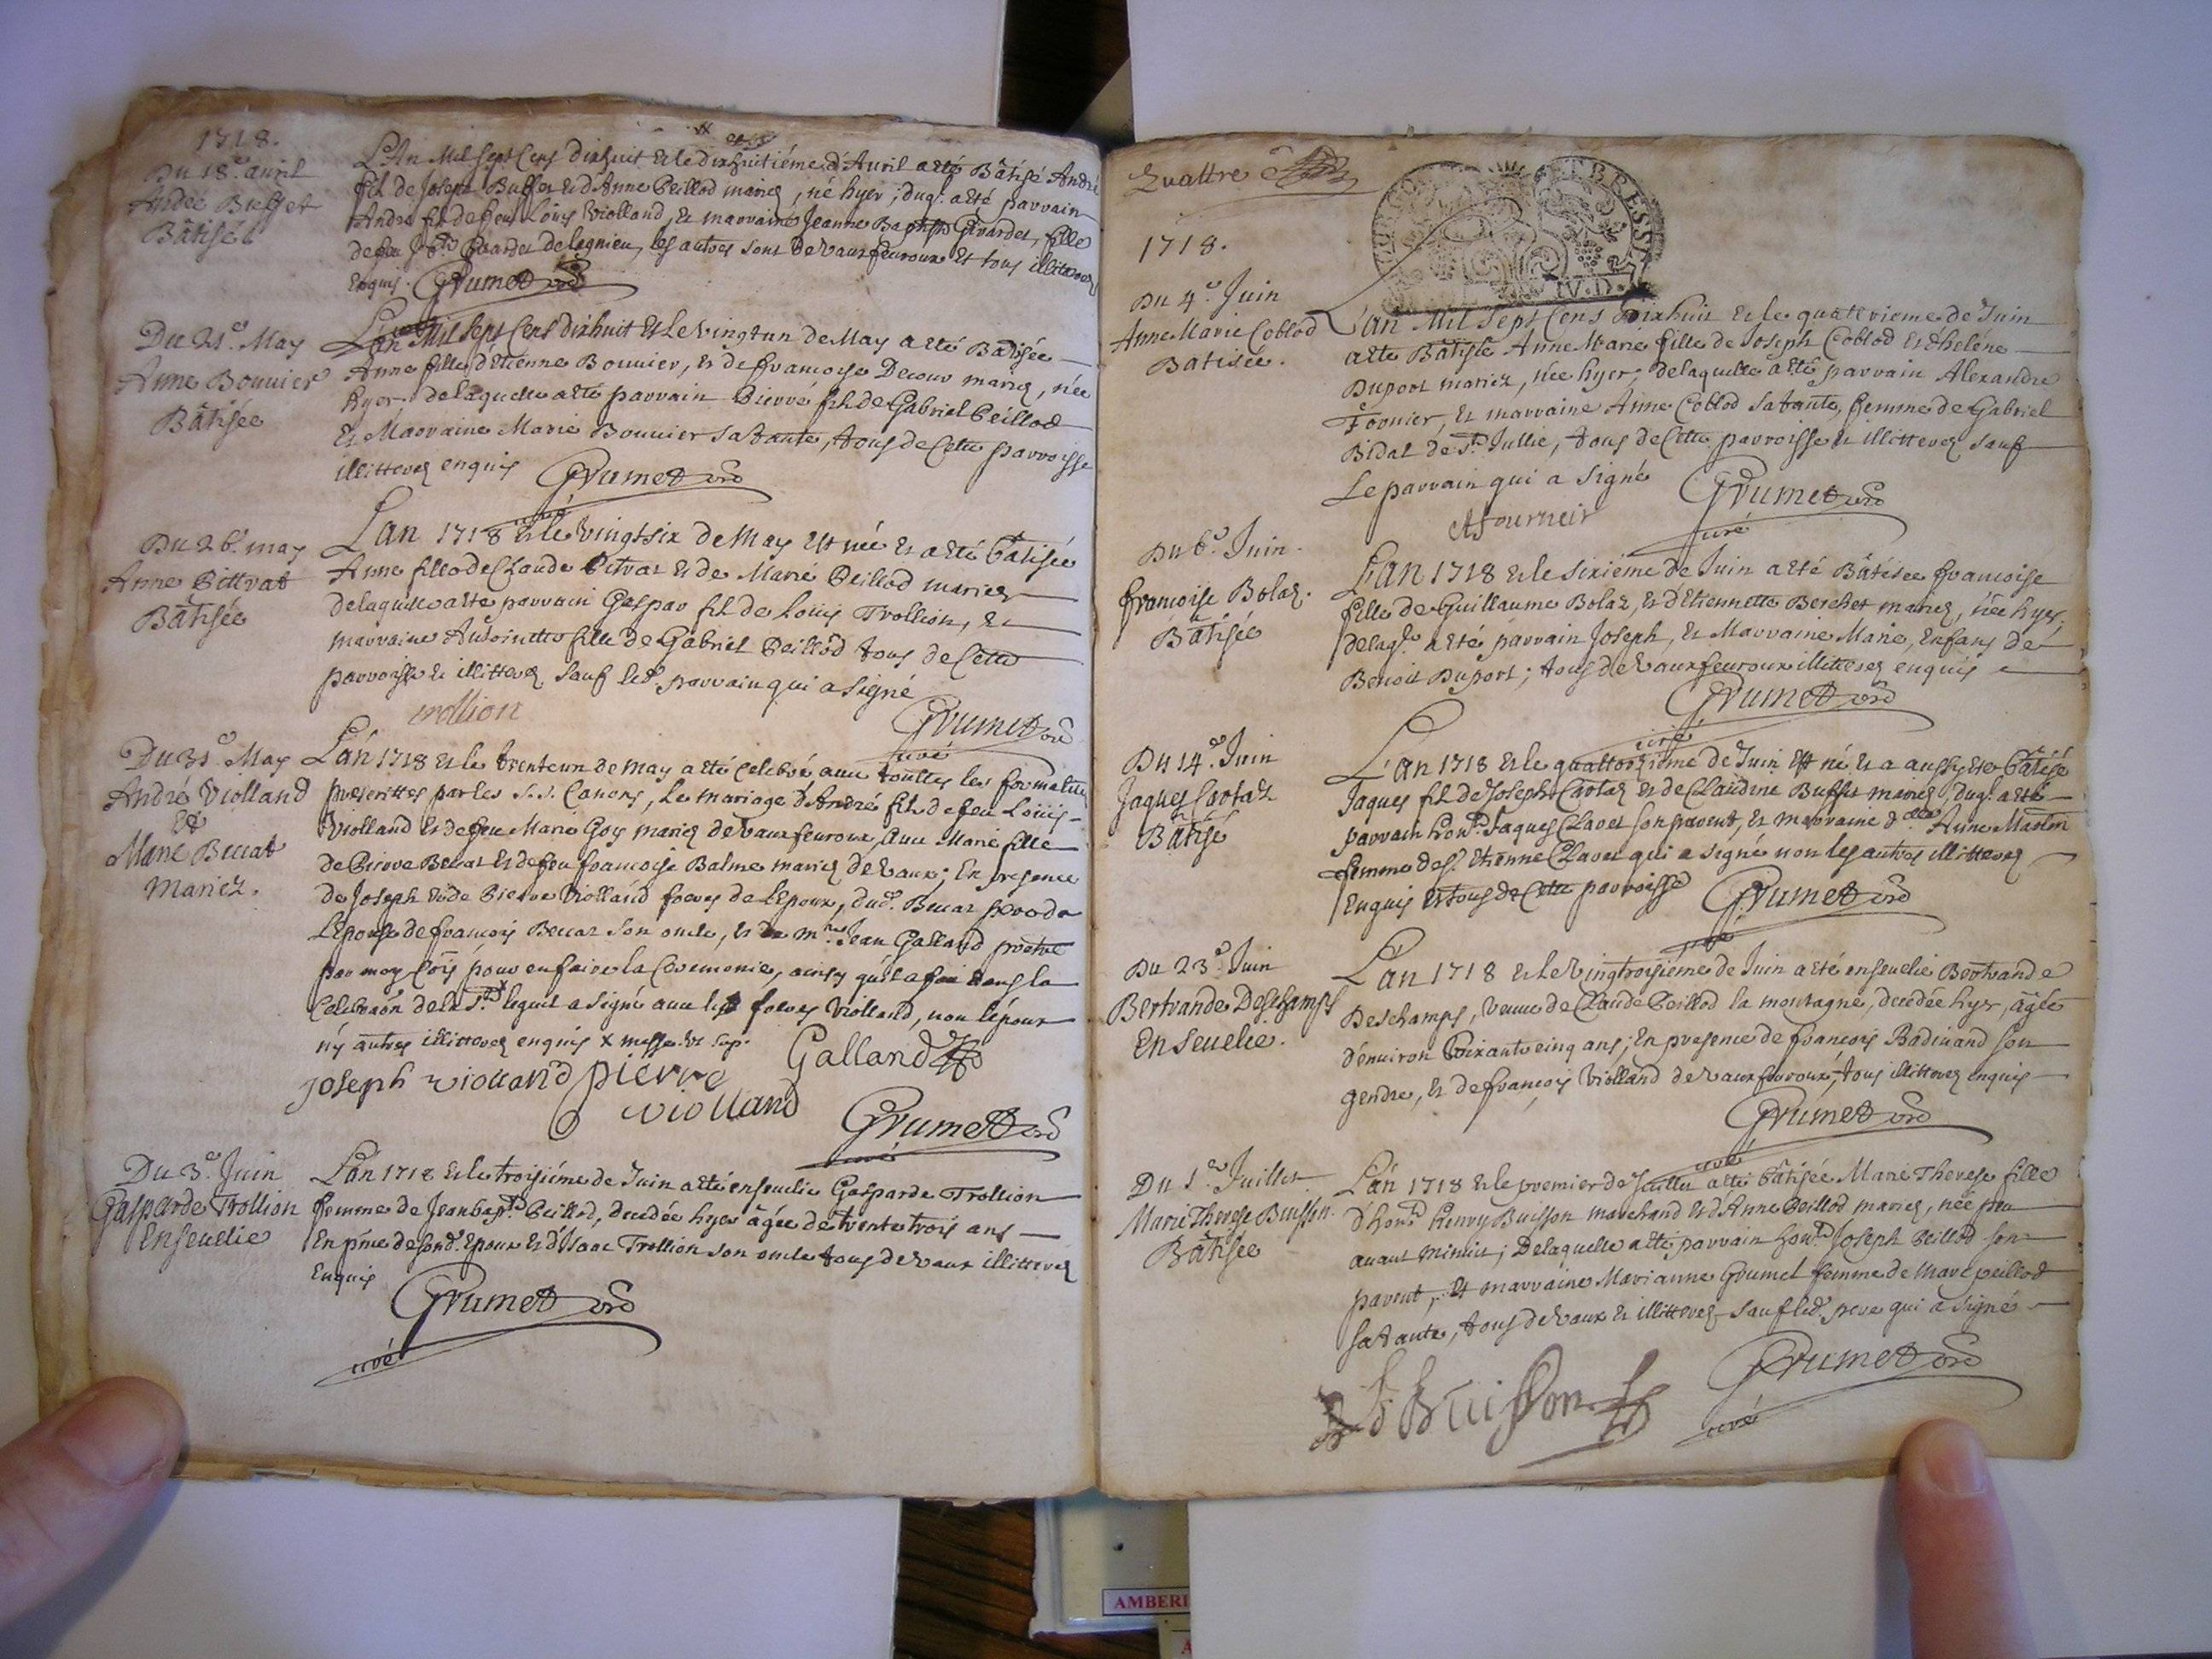 1718.
Du 18.e avril
André Buffet
Bâtisé
L'An Mil sept Cens dixhuit Et le dixhuitiéme d'Avril a eté Bâtisé André
fil de Joseph Buffet Et d'Anne Peillod mariez, né hyer; duq.l a eté parrain
André fil de feu Louis Violland, Et marraine Jeanne Girardet, fille
de feu Girardet de lagnieu, les autres sont de Vauxfevroux Et tous illitterez
Enquis. Grumet
curé
Du 21.e May
Anne Bouvier
Bâtisée
L'an Mil sept Cens dixhuit Et le vingtun de May a eté Batisée
Anne fille d'Etienne Bouvier, Et de francoise Decour mariez, née
hyer. de laquelle a eté parrain Pierre fil de Gabriel Peillod
Et Marraine Marie Bouvier sa tante, tous de Cette parroisse
illitterez enquis Grumet
curé
Du 26.e may
Anne Pittrat
Bâtisée
L'an 1718 Et le Vingtsix de May Est née Et a eté bâtisée
Anne fille de Claude Pitrat Et de Marie Peillod mariez
de laquelle a eté parrain Gaspar fil de Louis Trollion, Et
marraine Antoinette fille de Gabriel Peillod tous de Cette
parroisse Et illitterez sauf led. parrain qui a signé
trollion
Grumet
curé
Du 31.e May
André Violland
Et
Marie Beccat
Mariez.
L'an 1718 Et le trenteun de may a eté Celebré avec touttes les formalités
prescrittes par les S.S. Canons, Le mariage d'André fil de feu Louis
Violland Et de feu Marie Goy mariez de Vauxfevroux, Avec Marie fille
de Pierre Beccat Et de feu francoise Balme mariez de Vaux; En presence
de Joseph Et de Pierre Violland freres de L'Epoux, dud. Beccat pere de
L'Epouse de francois Beccat son oncle, Et de m.re Jean Galland prêtre
par moy Cõis pour en faire la Ceremonie, ainsy qu'il a fait dans la
Celebraõn de la S.te x lequel a signé avec les freres Violland, non l'époux
ny autres illitterez enquis x messe. ut sup.
Galland
joseph violland pierre
violland
Grumet
curé
Du 3.e Juin
Gasparde Trollion
Ensevelie
L'an 1718 Et le troisiéme de Juin a eté ensevelie Gasparde Trollion
femme de Jeanbap.te Peillod, decedée hyer âgée de trente trois ans
En pñce de sond. Epoux Et d'Isaac Trollion son oncle tous de Vaux illitterez
Enquis
Grumet
curé
Quattre
1718.
Du 4.e Juin
Anne Marie Coblod
Batisée.
L'an Mil sept Cens Dixhuit Et le quatrieme de Juin
a eté Bâtisée Anne Marie fille de Joseph Coblod Et d'helene
Duport mariez, née hyer; de laquelle a eté parrain Alexandre
Fornier, Et marraine Anne Coblod sa tante, femme de Gabriel
Bidal de S.t Jullie, tous de Cette parroisse Et illitterez sauf
Le parrain qui a signé Grumet
curé
AFourneir
Du 6.e Juin.
francoise Bolaz.
Bâtisée
L'an 1718 Et le sixiéme de Juin a eté Bâtisée francoise
fille de Guillaume Bolaz, Et d'Etiennette Berchet mariez, née hyer,
delaq.le a eté parrain Joseph, Et Marraine Marie, Enfans de
Benoit Duport; tous de Vauxfevroux illitterez enquis
Grumet
curé
Du 14.e Juin
Jaques Cartaz
Bâtisé
L'an 1718 Et le quattorziéme de Juin Est né Et a aussy Eté Bâtisé
Jaques fil de Joseph Cartaz Et de Claudine Buffet mariez, duq.l a eté
parrain hon.d Jaques Clavet son parent, Et marraine d.lle Anne Martin
femme de s.r Etienne Clavet qui a signé non les autres illitterez
Enquis Et tous de Cette parroisse Grumet
curé
Du 23.e Juin
Bertrande Deschamps
Ensevelie.
L'an 1718 Et le Vingtroisiéme de Juin a eté ensevelie Bertrande
Deschamps, veuve de Claude Peillod la montagne, decedée hyer, âgée
d'environ soixante cinq ans; En presence de francois Badinand son
gendre, Et de francois Violland de Vauxfevroux, tous illitterez enquis
Grumet
curé
Du 1.er Juillet
Marie Therese Buisson.
Bâtisée
L'an 1718 Et le premier de Juillet a eté bâtisée Marie Therese fille
d'hon.d Henry Buisson marchand Et d'Anne Peillod mariez, née peu
avant minuit; De laquelle a eté parrain hon.d Joseph Peillod son
parent, Et marraine Marianne Grumet femme de Marc peillod
sa tante, tous de Vaux Et illitterez sauf led. pere qui a signé
Buisson
Grumet
curé
AMBERI